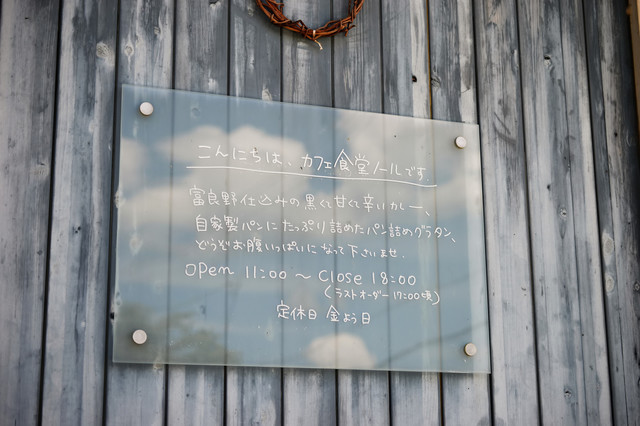 こんにちは、カフェ食堂ノールです。
富良野仕込みの黒くて甘くて辛いカレー、
自家製パンにたっぷり詰めたパン詰めグラタン、
どうぞお腹いっぱいになって下さいませ.
OPen 11:00 〜 Close 18:00
(ラストオーダー 17:00頃)
定休日 金よう日